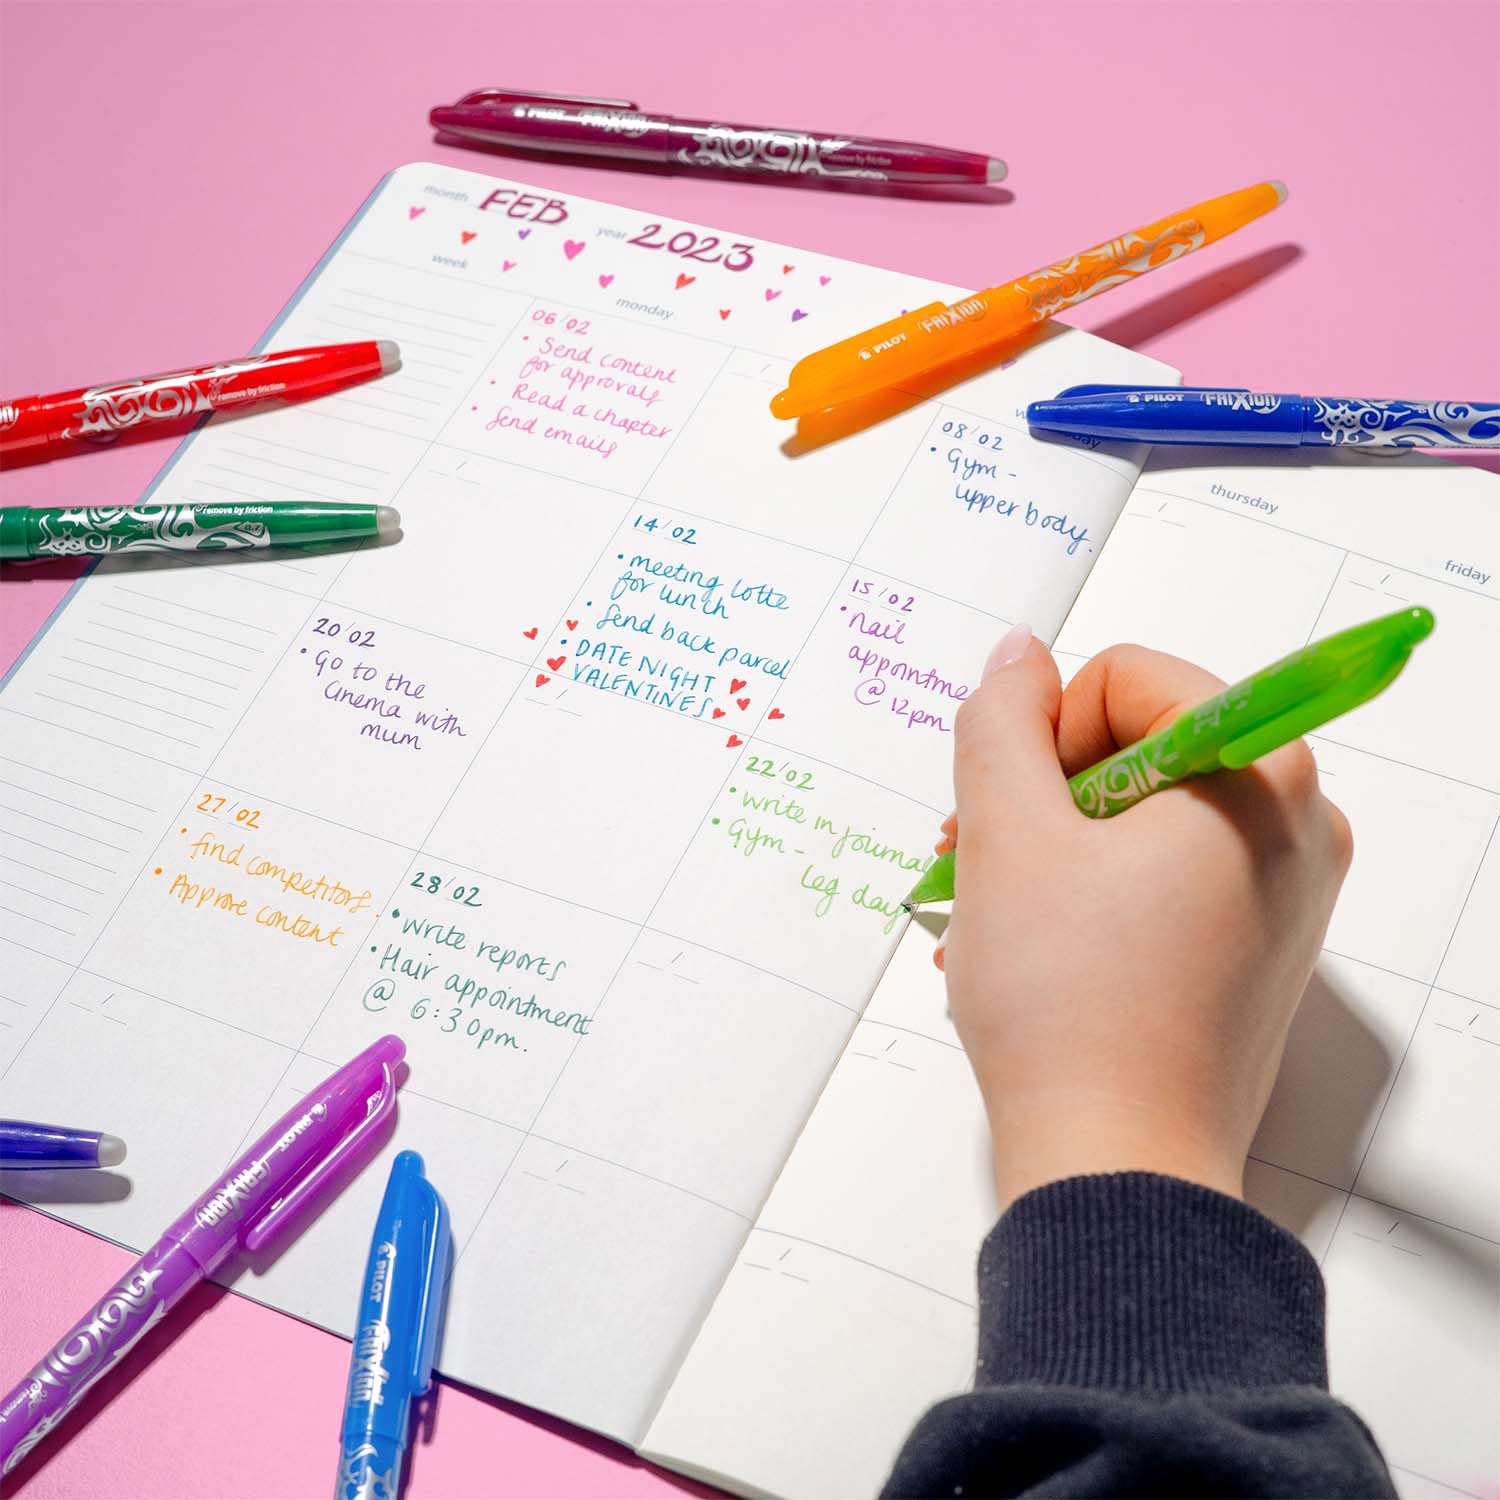 PILOT FRIXION remove by friction
month FEB year 2023
week
monday
thursday
friday
PILOT FRIXION
PILOT FRIXION
remove by friction
remove by friction
0.7
06/02
• Send content
for approvals
• Read a chapter
• Send emails
08/02
• Gym -
upper body.
14/02
• meeting lotte
for lunch
• Send back parcel
• DATE NIGHT
VALENTINES
15/02
• nail
appointme
@ 12pm
20/02
• Go to the
cinema with
mum
22/02
• write in journal
• Gym -
leg day
27/02
• find competitors.
• Approve content
28/02
• write reports
• Hair appointment
@ 6:30pm.
PILOT FRIXION
PILOT FRIXION